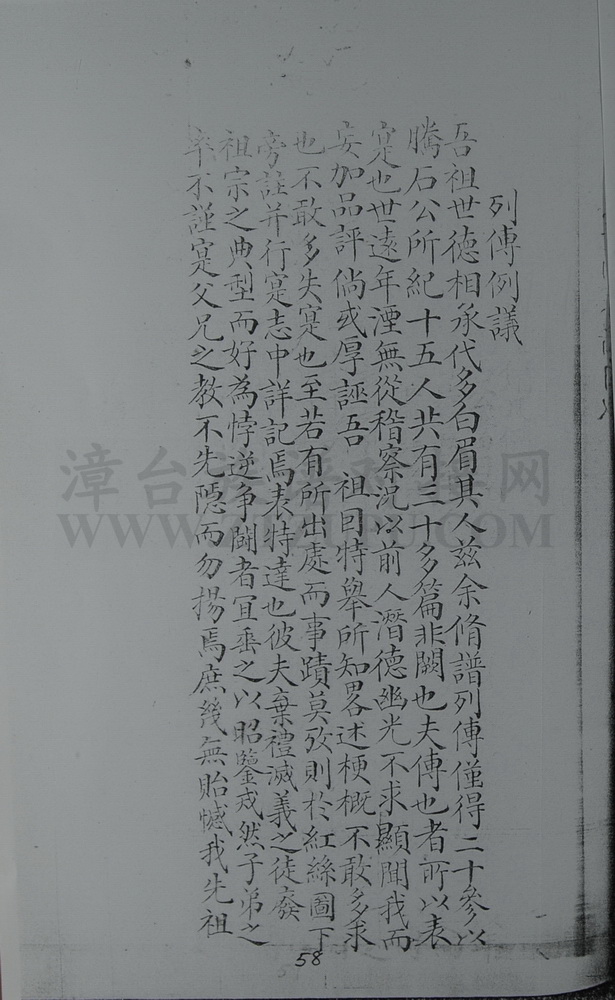 列傳例議
吾祖世德相承代多白眉其人茲余脩譜列傳僅得二十參以
騰石公所紀十五人共有三十多篇非闕也夫傳也者所以表
寔也世遠年湮無從稽察況以前人潛德幽光不求顯聞我而
妄加品評倘或厚誣吾 祖囙特舉所知畧述梗概不敢多求
也不敢多失寔也至若有所出處而事蹟莫攷則於紅絲圖下
旁註并行寔志中詳記焉表特達也彼夫棄禮滅義之徒廢
祖宗之典型而好為悖逆争鬪者宜垂之以昭鑒戒然子弟之
率不謹寔父兄之教不先隱而勿揚焉庶幾無貽憾我先祖
58
漳台族譜對接网
WWW.ZTZUPU.COM